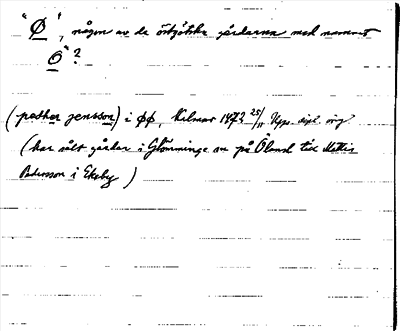 "Ø", någon av de östgötska gårdarna med namnet
Ö"?
(pether jensson) i øø, Kalmar 1472 25/11 Upps. dipl. orig
(har sålt gårdar i Glömminge sn på Öland till Mattis
Pedersson i Ekeby)